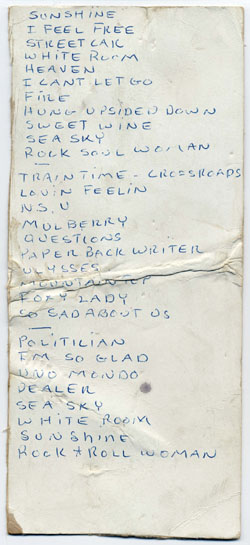 SUNSHINE
I FEEL FREE
STREETCAR
WHITE ROOM
HEAVEN
I CANT LET GO
FIRE
HUNG UPSIDED DOWN
SWEET WINE
SEA SKY
ROCK SOUL WOMAN
—
TRAIN TIME - CROSSROADS
LOVIN FEELIN
N.S.U
MULBERRY
QUESTIONS
PAPER BACK WRITER
ULYSSES
FOXY LADY
SO SAD ABOUT US
—
POLITICIAN
I'M SO GLAD
UNO MONDO
DEALER
SEA SKY
WHITE ROOM
SUNSHINE
ROCK + ROLL WOMAN